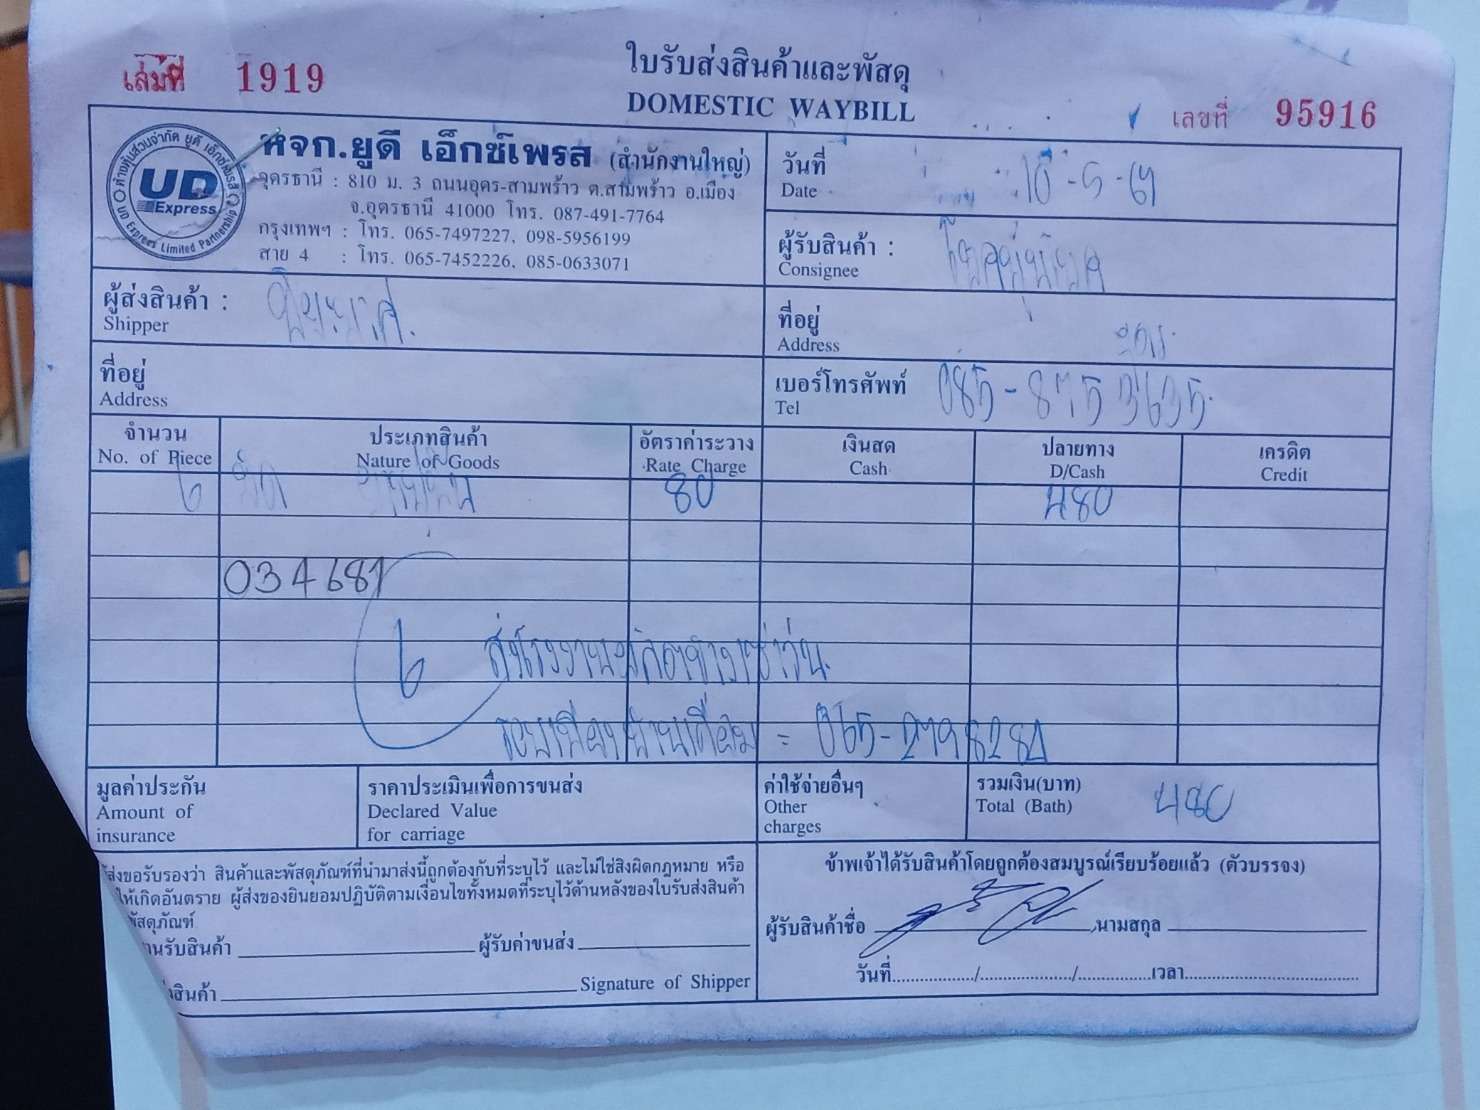 เล่มที่ 1919
ใบรับส่งสินค้าและพัสดุ
DOMESTIC WAYBILL
เลขที่ 95916
ห้างหุ้นส่วนจำกัด ยูดี เอ็กซ์เพรส
UD Express
UD Express Limited Partnership
หจก.ยูดี เอ็กซ์เพรส (สำนักงานใหญ่)
อุดรธานี : 810 ม. 3 ถนนอุดร-สามพร้าว ต.สามพร้าว อ.เมือง
จ.อุดรธานี 41000 โทร. 087-491-7764
กรุงเทพฯ : โทร. 065-7497227, 098-5956199
สาย 4 : โทร. 065-7452226, 085-0633071
วันที่
Date
ผู้รับสินค้า :
Consignee
ผู้ส่งสินค้า :
Shipper
ที่อยู่
Address
อุดร
ที่อยู่
Address
เบอร์โทรศัพท์ 085-8753635
Tel
จำนวน ประเภทสินค้า อัตราค่าระวาง เงินสด ปลายทาง เครดิต
No. of Piece Nature of Goods Rate Charge Cash D/Cash Credit
6 80 480
034681
6 ส่งโรงงาน
= 065-2798284
มูลค่าประกัน
Amount of
insurance
ราคาประเมินเพื่อการขนส่ง
Declared Value
for carriage
ค่าใช้จ่ายอื่นๆ
Other
charges
รวมเงิน(บาท)
Total (Bath) 480
ส่งขอรับรองว่า สินค้าและพัสดุภัณฑ์ที่นำมาส่งนี้ถูกต้องกับที่ระบุไว้ และไม่ใช่สิ่งผิดกฎหมาย หรือ
ให้เกิดอันตราย ผู้ส่งของยินยอมปฏิบัติตามเงื่อนไขทั้งหมดที่ระบุไว้ด้านหลังของใบรับส่งสินค้า
พัสดุภัณฑ์
รับสินค้า ผู้รับค่าขนส่ง
สินค้า Signature of Shipper
ข้าพเจ้าได้รับสินค้าโดยถูกต้องสมบูรณ์เรียบร้อยแล้ว (ตัวบรรจง)
ผู้รับสินค้าชื่อ นามสกุล
วันที่ / / เวลา